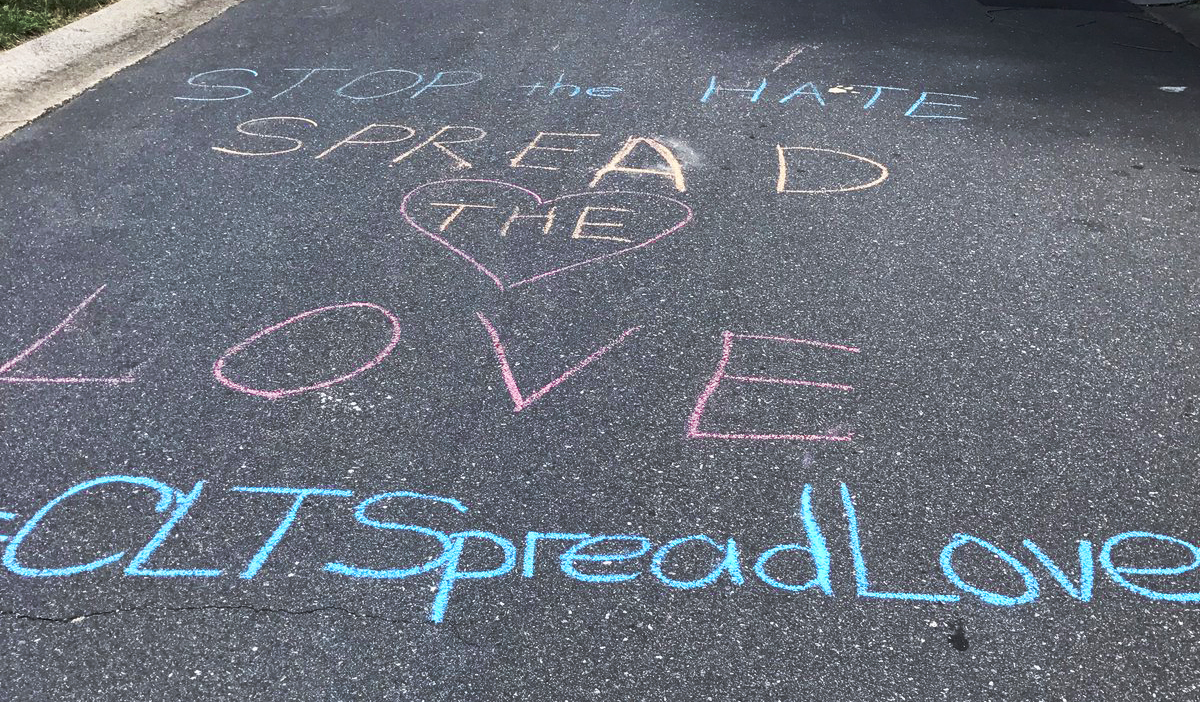 STOP the HATE
SPREAD
THE
LOVE
#CLTSpreadLove